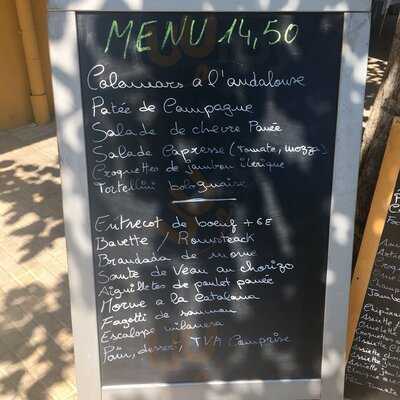 MENU 14,50
Calamars a l'andalouse
Patée de Campagne
Salade de chevre Panée
Salade Capresse (Tomate, mozza)
Croquettes de jambon iberique
Tortellini bolognaise
Entrecot de boeuf + 6E
Bavette / Romsteack
Brandada de morue
Saute de Veau au chorizo
Aiguilletes de poulet panée
Morue a la Catalana
Fagotti de saumon
Escalope milanesa
Pain, dessert, TVA Comprise